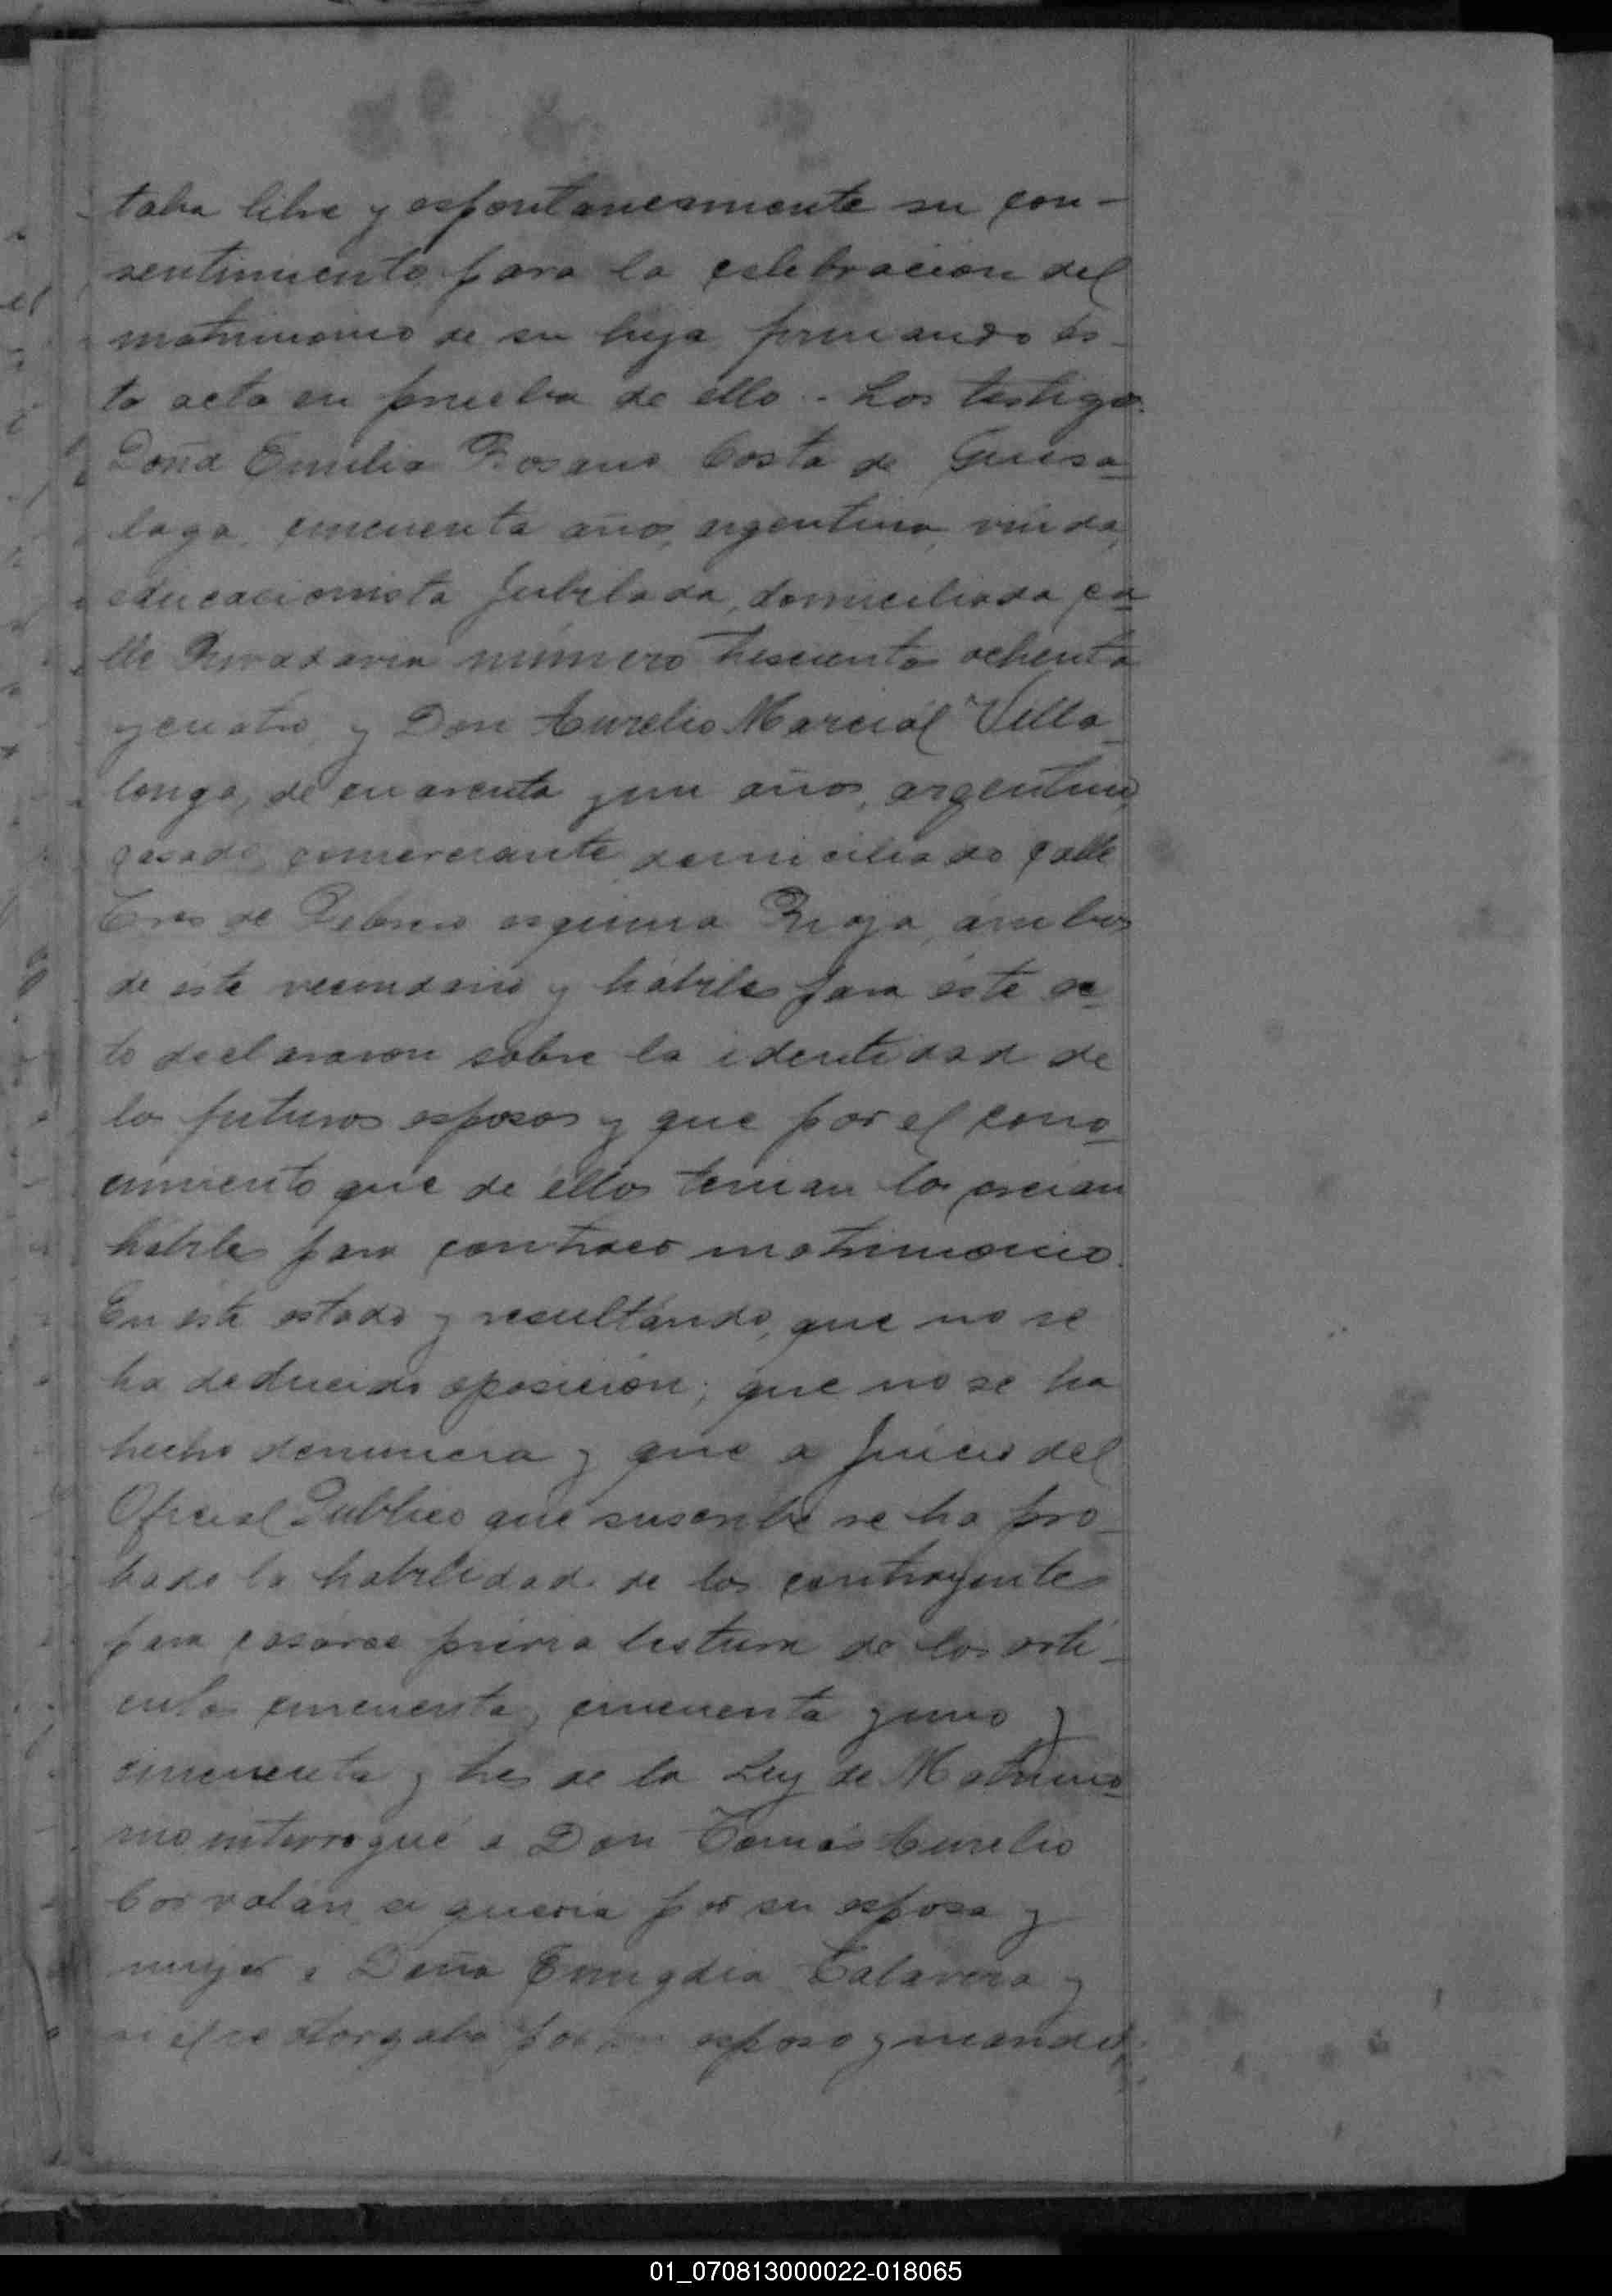 taba libre y espontaneamente su con-
sentimiento para la celebracion del
matrimonio de su hija firmando és-
ta acta en prueba de ello.- Los testigos
Doña Emilia Rosario Costa de Guisa
laga, cincuenta años, argentina, viuda,
educacionista jubilada, domiciliada ca
lle Rivadavia número trescientos ochenta
y cuatro, y Don Aurelio Marcial Villa
longa, de cuarenta y un años, argentino
casado, comerciante domiciliado calle
Tres de Febrero esquina Rioja, ámbos
de éste vecindario y hábiles para éste ac
to declararon sobre la identidad de
los futuros esposos y que por el cono
cimiento que de éllos tenian los creian
hábiles para contraer matrimonio.
En éste estado y resultando, que no se
ha deducido oposición; que no se ha
hecho denuncia y que a juicio del
Oficial Publico que suscribe se ha pro-
bado la habilidad de los contrayentes
para casarse prévia lectura de los artí-
culos cincuenta, cincuenta y uno y
cincuenta y tres de la Ley de Matrimo
nio interrogué a Don Tomás Aurelio
Corvalán si queria por su esposa y
mujer a Doña Emigdia Talavera y
si él se otorgaba por su esposo y marido,
01_070813000022-018065